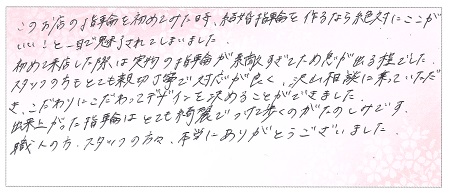 このお店の指輪を初めてみた時、結婚指輪を作るなら絶対にここが
いい!と一目で魅了されてしまいました。
初めて来店した際は実物の指輪が素敵すぎてため息が出る程でした。
スタッフの方もとても親切丁寧で対応が良く、沢山相談に乗っていただ
き、こだわりにこだわってデザインを決めることができました。
出来上がった指輪はとても綺麗でつけて歩くのがたのしみです。
職人の方、スタッフの方々、本当にありがとうございました。